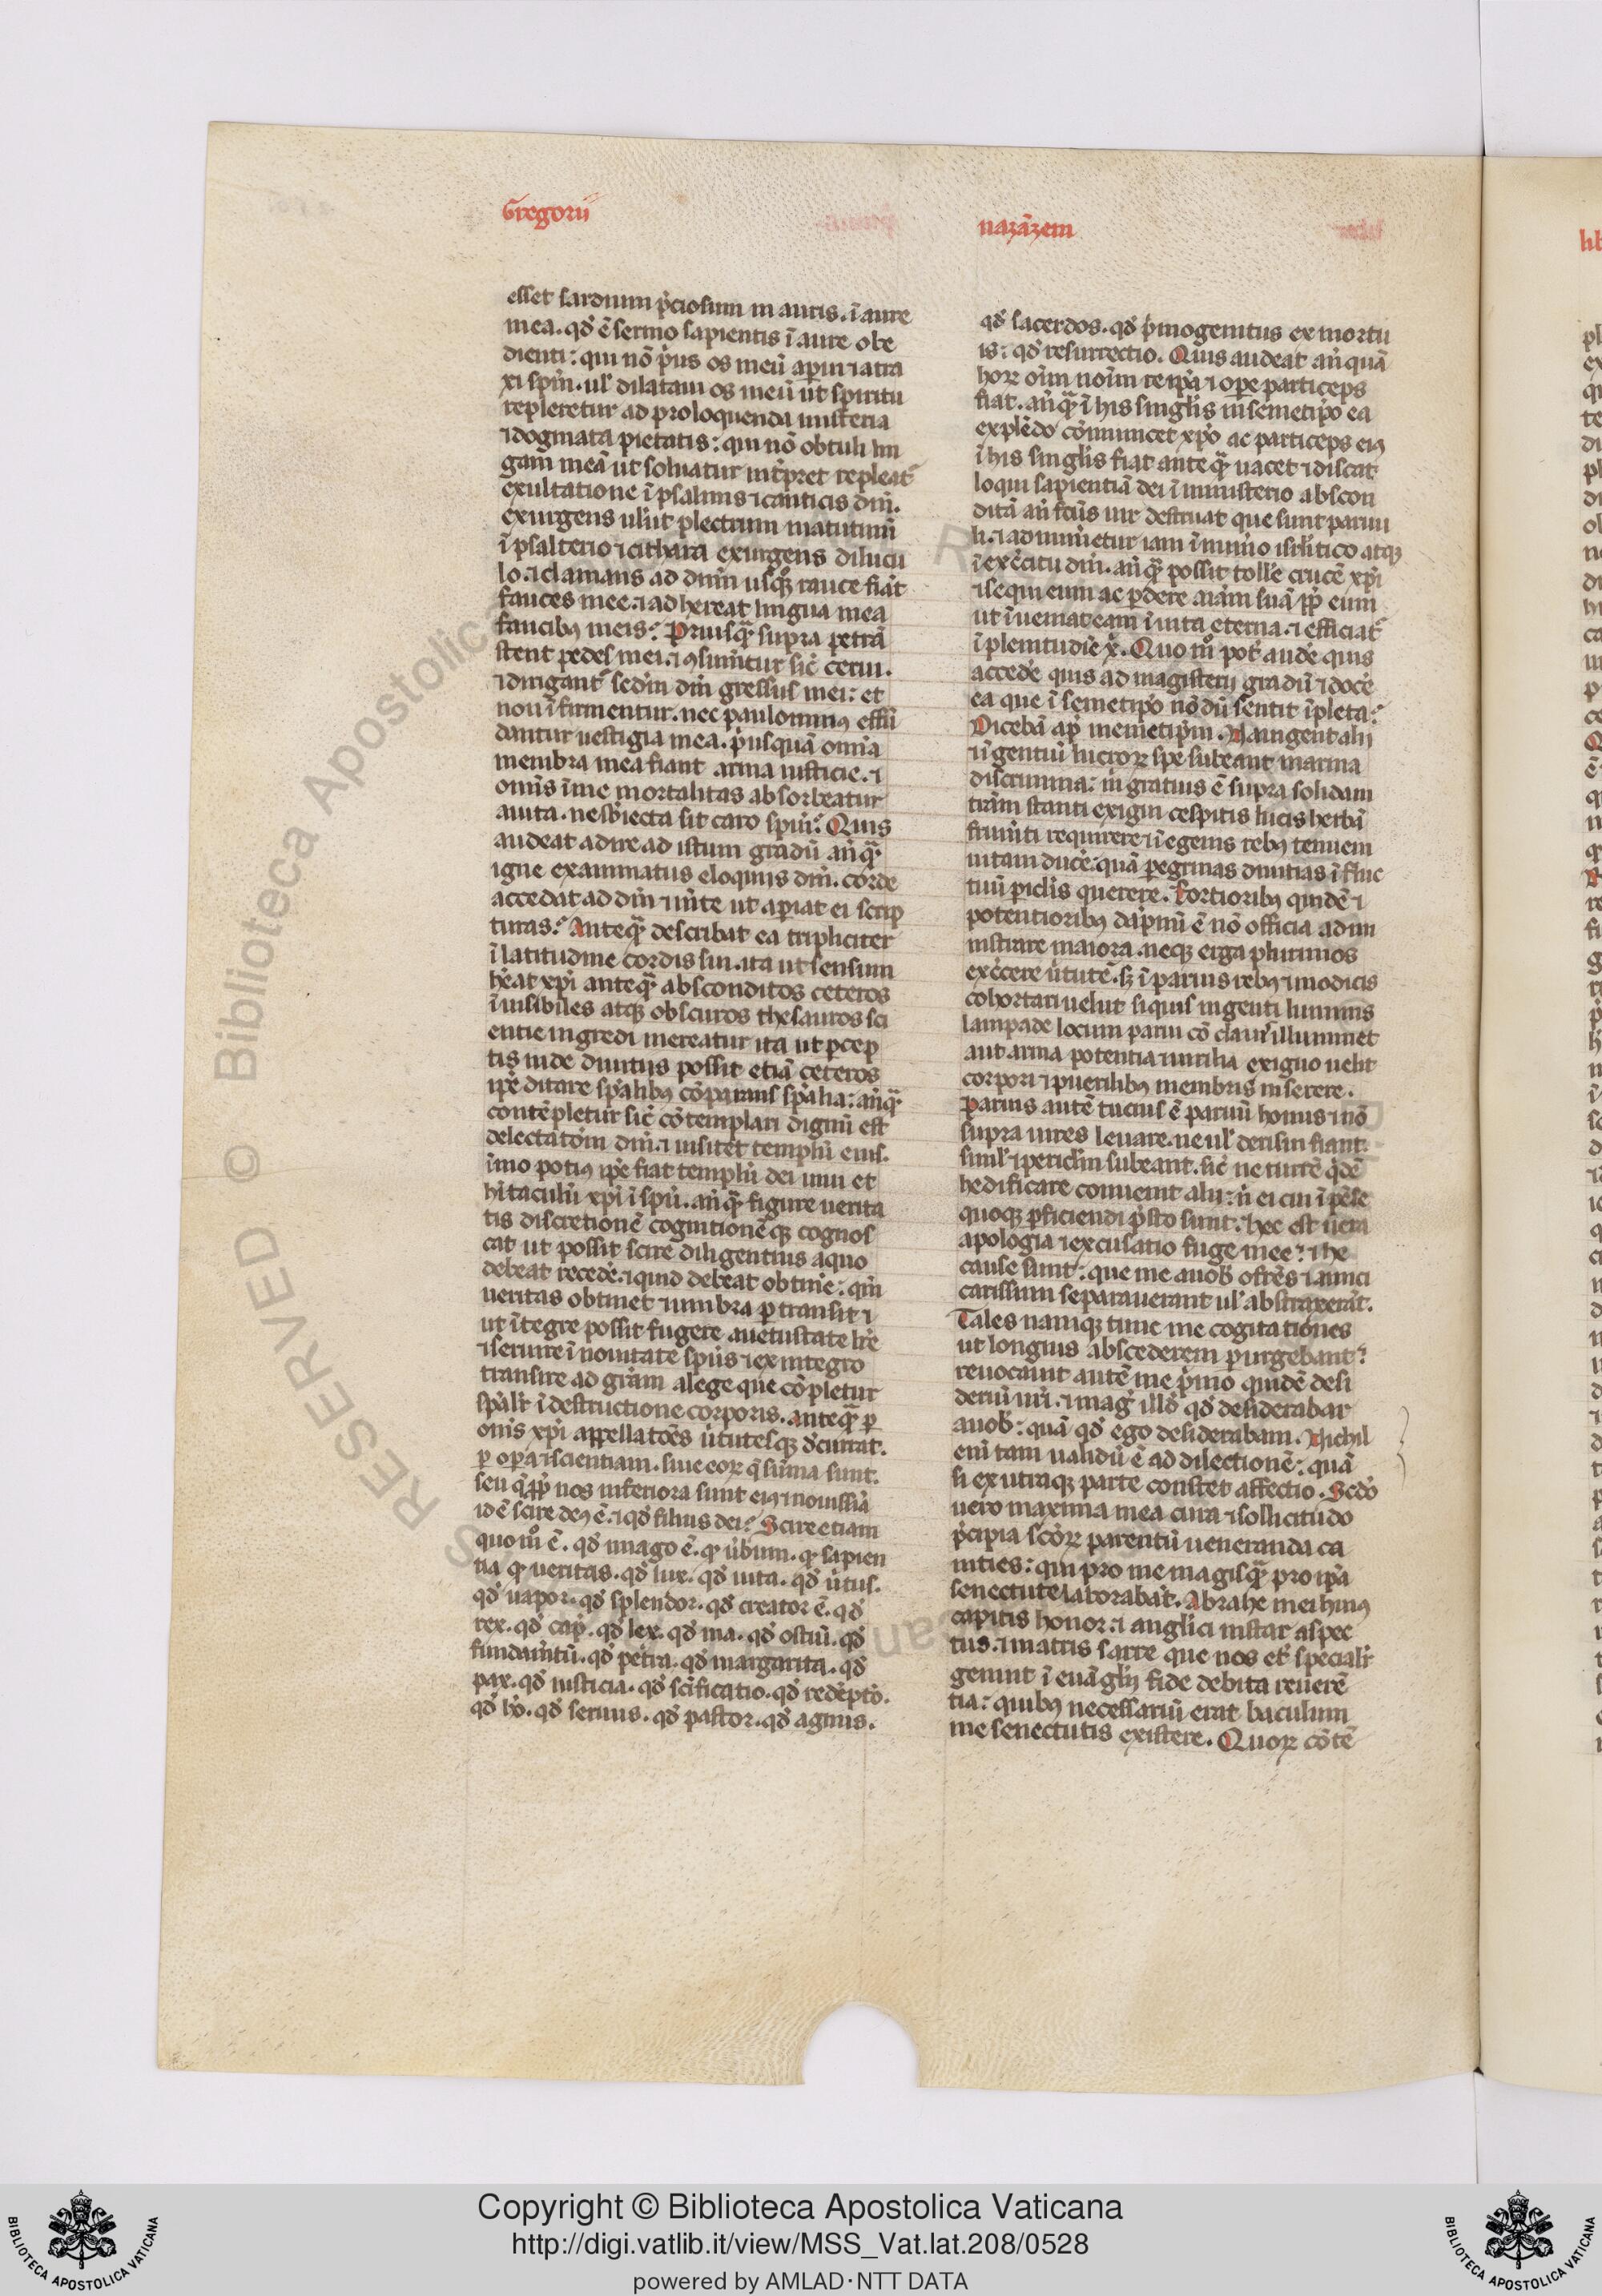 Gregorii
esset sardinum p̄ciosum in auris. ī aure
mea. qd̓ ē sermo sapientis ī aure obe
dienti: qui nō p̓us os meū aꝑui ⁊ atra
xi spm̄. ul̓ dilataui os meū ut spiritu
repleretur ad proloquenda misteria
⁊ dogmata pietatis: qui nō obtuli lin
guam meā ut soluatur int̓pret repleat᷑
exultatione ī psalmis ⁊ canticis dn̄i.
exurgens ul̓ut plectrum matutinū
ī psalterio ⁊ cithara exurgens dilucu
lo. ⁊ clamans ad dnm̄ usqꝫ rauce fiāt
fauces mee. ⁊ ad hereat lingua mea
faucibꝰ meis? Priusqꝫ supra petrā
stent pedes mei. ⁊ ꝯsum̄tur sic̄ cerui.
⁊ dirigant᷑ sedm̄ dm̄ gressus mei: et
non ī firmentur. nec paulominꝰ effū
dantur uestigia mea. p̓usquā omīa
membra mea fiant arma iusticie. ⁊
omīs ī me mortalitas absorbeatur
auita. ne sb̓iecta sit caro spūi? Quis
audeat adire ad istum gradū an̄qꝫ
igne examinatus eloquiis dn̄i. corde
accedat ad dm̄ ⁊ m̄te ut aꝑiat ei scrip
turas? Anteqꝫ describat ea tripliciter
ī latitudine cordis sui. ita ut sensum
heat xp̄i anteqꝫ absconditos ceteros
ī uisibiles atqꝫ obscuros thesauros sci
entie ingredi mereatur ita ut ꝑcep
tis inde diuitiis possit etiā ceteros
ip̄e ditare sp̄alibꝰ cōparans sp̄alia: an̄qꝫ
contēpletur sic̄ cōtemplari dignū est
delectatōm dn̄i. ⁊ uisitet templū eius.
imo potiꝰ ip̄e fiat templū dei uiui et
hītaculū xp̄i ī spū. an̄qꝫ figure uerita
tis discretionē cognitionēqꝫ cognos
cat ut possit scire diligentius aquo
debeat recede. ⁊ quid debeat obtine: qm̄
ueritas obtinet ⁊ umbra ꝑ transit ⁊
ut ītegre possit fugere auetustate lr̄e
⁊ seruire ī nouitate spūs ⁊ ex integro
transire ad grām alege que cōpletur
sp̄alr̄ ī destructione corporis. anteqꝫ ꝑ
om̄s xp̄i appellatōes ū̓tutesqꝫ d̓currat.
ꝑ opera ⁊ scientiam. siue eoꝝ q̄ sūma sunt.
seu q̄ ꝓp̄ nos inferiora sunt eiꝰ ⁊ nouissīa
id ē scire deꝰ ē. ⁊ qd̓ filius dei? Scire etiam
quom̊ ē. qd̓ imago ē. qꝫ ūbum. qꝫ sapien
tia qꝫ ueritas. qd̓ lux. qd̓ uita. qd̓ ū̓tus.
qd̓ uapor. qd̓ splendor. qd̓ creator ē. qd̓
rex. qd̓ cap̄. qd̓ lex. qd̓ uia. qd̓ ostiū. qd̓
fundam̄tū. qd̓ petra. qd̓ margarita. qd̓
pax. qd̓ iusticia. qd̓ sc̄ificatio. qd̓ redēpto̓.
qd̓ hō. qd̓ seruus. qd̓ pastor. qd̓ agnus.
nazāzeni
qd̓ sacerdos. qd̓ p̓mogenitus ex mortu
is: qd̓ resurrectio. Quis audeat an̄ quā
hoꝝ oīm noīm re ip̄a ⁊ oꝑe particeps
fiat. an̄qꝫ ī his singlis in semetip̄o ea
explēdo cōmunicet xp̄o ac particeps eiꝰ
ī his singlis fiat anteqꝫ uacet ⁊ discat
loqui sapientiā dei ī ministerio abscon
ditā an̄ fcūs uir destruat que sunt paruu
li. ⁊ adnum̄etur iam ī num̄o isrl̄itico atqꝫ
ī exercitu dn̄i. an̄qꝫ possit tolle crucē xp̄i
⁊ sequi eum ac ꝑdere aīam suā ꝓp̄ eum
ut īueniat eam ī uita eterna. ⁊ efficiat᷑
ī plenitudīe x̄. Quo m̊ pot̄ aude quis
accede quis ad magisterij gradū ⁊ docē
ea que ī semetip̄o nōdū sentit īpleta?
Dicebā ap̄ memetip̄m. Nauigent alij
⁊ ī gentiū lucroꝝ spe subeant marina
discrimina: m̄ gratius ē supra solidam
trām stanti exigui cespitis lucis herbā
frum̄ti requirere ⁊ ī egenis rebꝰ tenuem
uitam ducē: quā ꝑegrinas diuitias ī fluc
tuū ꝑiclīs querere. Fortioribꝰ quidē ⁊
potentioribꝰ dāpnū ē nō officia admi
nistrare maiora. neqꝫ erga plurimos
exercere ū̓tutē. sꝫ ī paruis rebꝰ ⁊ modicis
cohortari uelut siquis ingenti luminis
lampade locum parui cō claui̓ illuminet
aut arma potentia ⁊ utilia exiguo uelit
corpori ⁊ puerilibꝰ membris inserere.
Paruis autē tucius ē paruū honus ⁊ nō
supra uires leuare. ne ul̓ derisui fiant.
simul̓ ⁊ periclm̄ subeant. sic̄ ne turrē qd̓ē
hedificare conuenit alii: n̄ ei cui īpēse
quoqꝫ ꝑficiendi p̓sto sunt. hec est uera
apologia ⁊ excusatio fuge mee? ⁊ he
cause sunt: que me auob̓ o frēs ⁊ amici
carissimi separauerant ul̓ abstraxerāt.
Tales namqꝫ tunc me cogitationes
ut longius abscederem ꝑurgebant?
reuocauit autē me p̓mo quidē desi
deriū ūri. ⁊ mag̓ illd̓ qd̓ desiderabar
auob̓: quā qd̓ ego desiderabam. Nichil
enī tam ualidū ē ad dilectionē: quā
si ex utraqꝫ parte constet affectio. Scd̓o
uero maxima mea cura ⁊ sollicitudo
p̓cipia sc̄oꝝ parentū ueneranda ca
nities: qui pro me magisqꝫ pro ip̄a
senectute laborabāt. Abrahe mei huiꝰ
capitis honor. ⁊ anglici instar aspec
tus. ⁊ matris sarre que nos et̄ specialr̄
genuit ī euāglij fide debita reuerē
tia: quibꝰ necessariū erat baculum
me senectutis existere. Quoꝝ cōtē
Copyright © Biblioteca Apostolica Vaticana
http://digi.vatlib.it/view/MSS_Vat.lat.208/0528
powered by AMLAD·NTT DATA
BIBLIOTECA APOSTOLICA VATICANA
BIBLIOTECA APOSTOLICA VATICANA